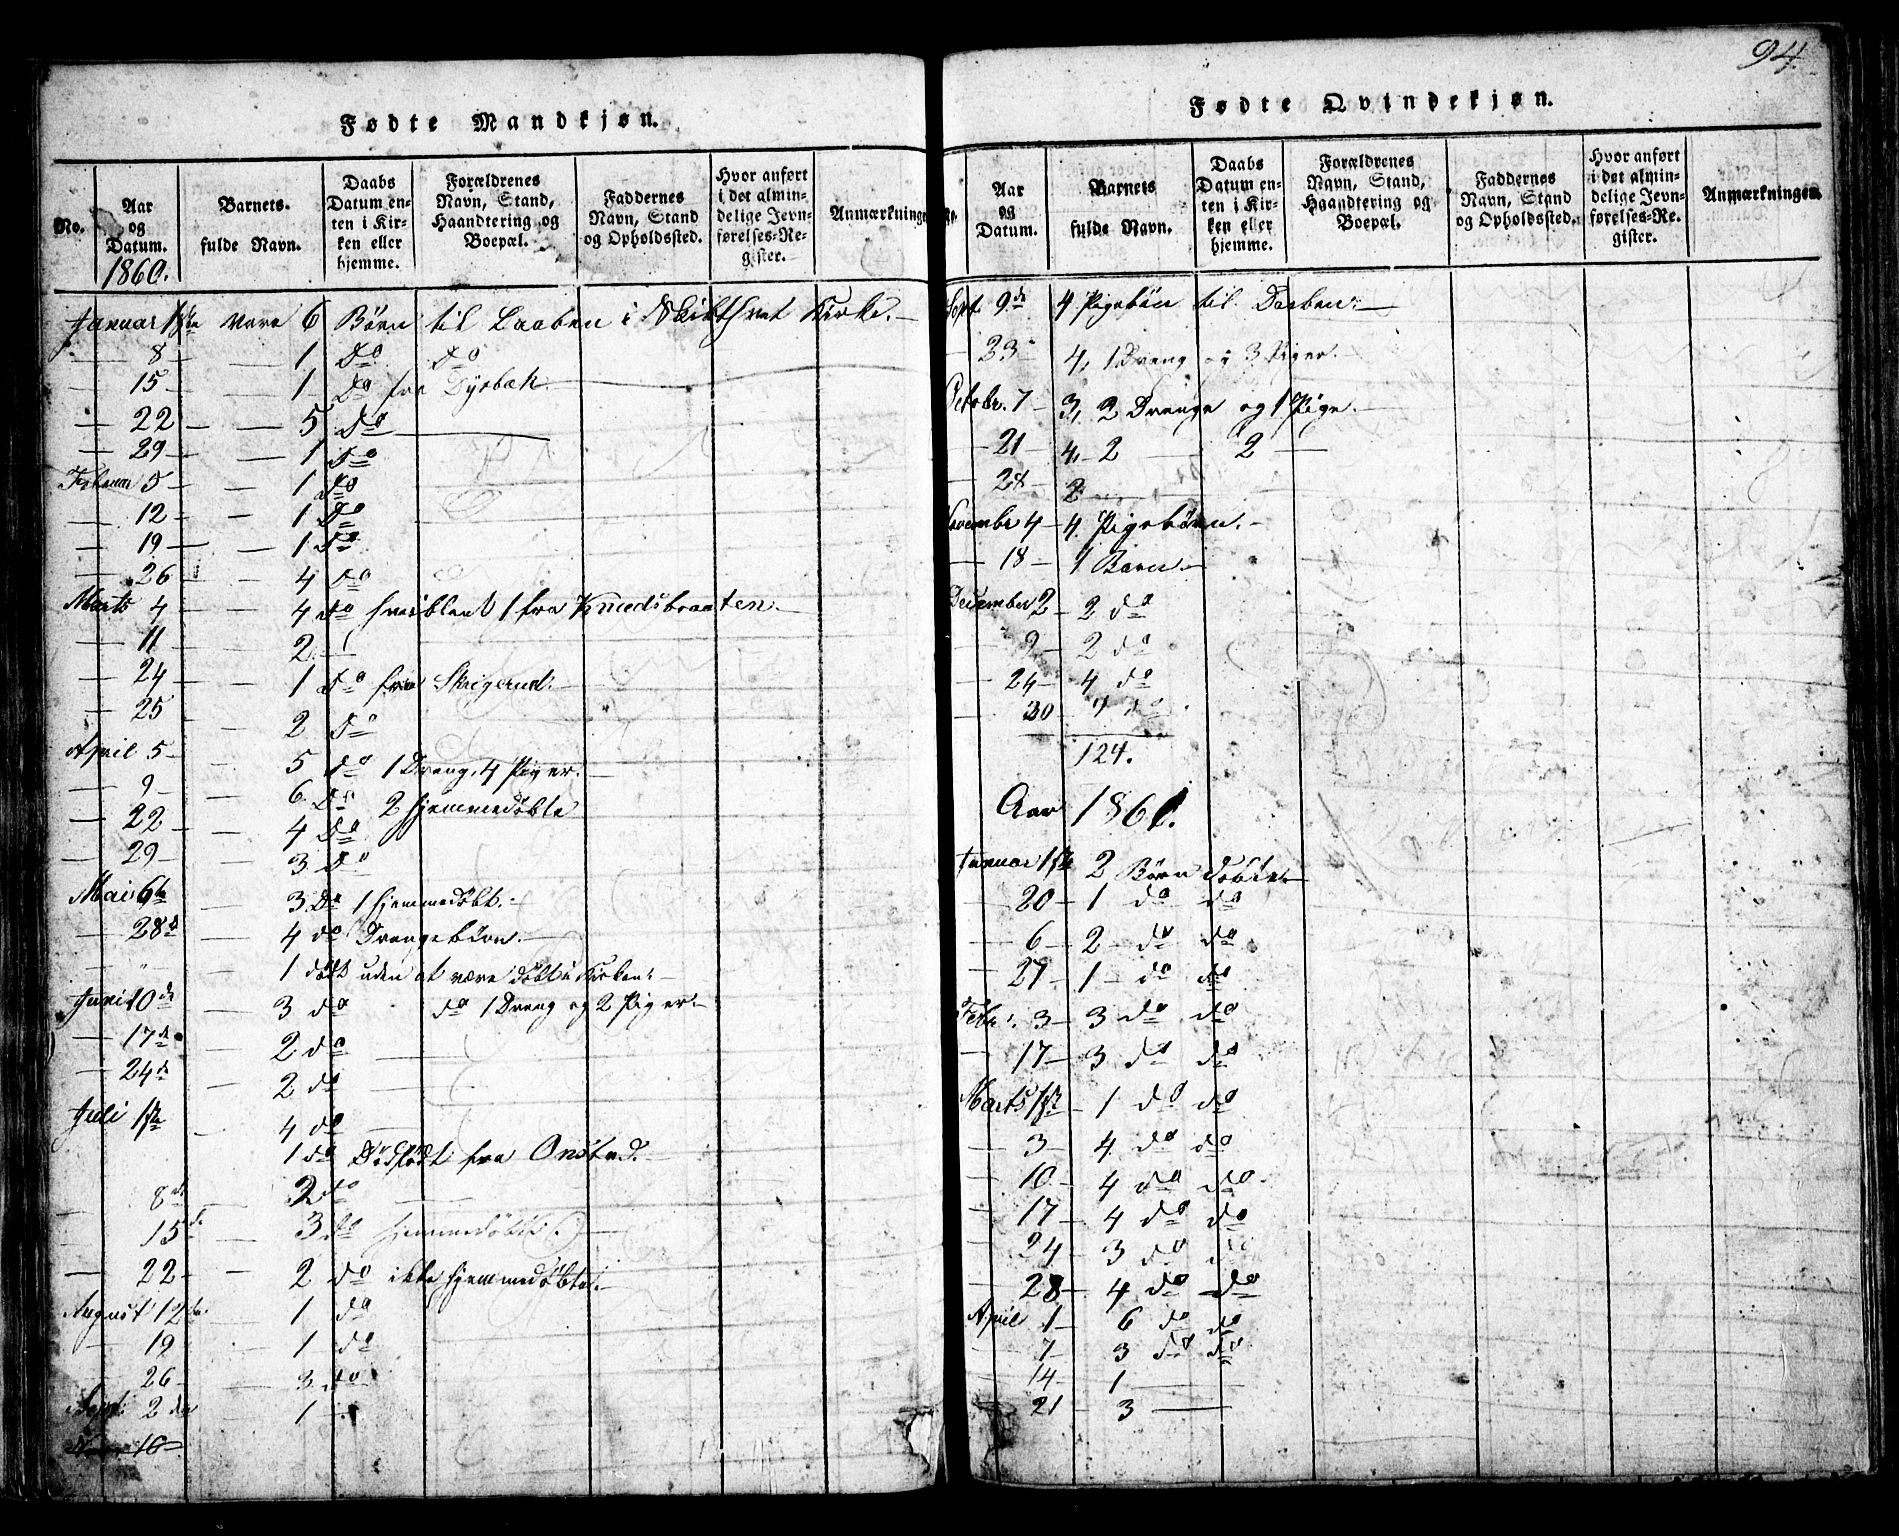 94.
Fødte Mandkjøn.
No.
Aar og Datum.
1860.
Barnets fulde Navn.
Daabs Datum enten i Kirken eller hjemme.
Forældrenes Navn, Stand, Haandtering og Boepæl.
Faddernes Navn, Stand og Opholdssted.
Hvor anført i det almindelige Jevnførelses-Register.
Anmærkninger
Januar 1ste vare 6 Børn til Daaben i Skibthvet Kirke.
— 8 — 1 do do
— 15 — 1 do fra Dysbæk
— 22 — — 5 do
— 29 — — 1 do
Februar 5 — — 1 do
— 12 — — 1 do
— 19 — — 1 do
— 26 — 4 do
Marts 4 4 do 1 fra Knedsbraaten.
— 11 2 —
— 24 — 1 do fra Skrigerud.
— 25 — 2 do
April 5 — 5 do 1 Dreng, 4 Piger.
— 9 — — 6 do 2 hjemmedøbte
— 22 — 4 do
— 29 — 3 do
Mai 6te — 3 do 1 hjemmedøbt.
— 28de — 4 do Drengebørn.
— " — 1 født uden at være døbt i Kirken.
Juni 10de — 3 do do 1 Dreng og 2 Piger.
— 17de — 2 do
— 24de — 2 do
Juli 1ste 4 do
1 do Dødfødt fra Onstad.
— 8de 2 do
— 15de 3 do hjemmedøbt.
— 22 — — 2 do ikke hjemmedøbte.
August 12te 1 do
— 19 — 1 do
— 26 — — 3 do
Sept: 2den 1 —
16 —
Fødte Qvindekjøn.
No.
Aar og Datum.
Barnets fulde Navn.
Daabs Datum enten i Kirken eller hjemme.
Forældrenes Navn, Stand, Haandtering og Boepæl.
Faddernes Navn, Stand og Opholdssted.
Hvor anført i det almindelige Jevnførelses-Register.
Anmærkninger.
Sept. 9de 4 Pigebørn til Daaben.
— 23 4, 1 Dreng og 3 Piger.
Octobr. 7 — 3, 2 Drenge og 1 Pige.
— 21 — 4, 2 — 2 —
— 28 — 2 —
Novembr 4 — 4 Pigebørn.
— 18 — 1 Barn.
December 2 — 2 do
— 9 — 2 do
— 24 — 4 do
— 30 do
124.
Aar 1861.
Januar 1ste 2 Børn døbte
— 20 — 1 do do
— 6 — 2 — do do
— 27 — 1 — do do
Febr: 3 — 3 do do
— 17 — 3 do do
Marts 1ste — 1 do do
— 3 — 4 do do
— 10 — 4 do do
— 17 — 4 do do
— 24 — 3 do do
— 28 — 4 do do
April 1 — 6 do do
— 7 — 3 do do
— 14 — 1 —
— 21 — 3 —